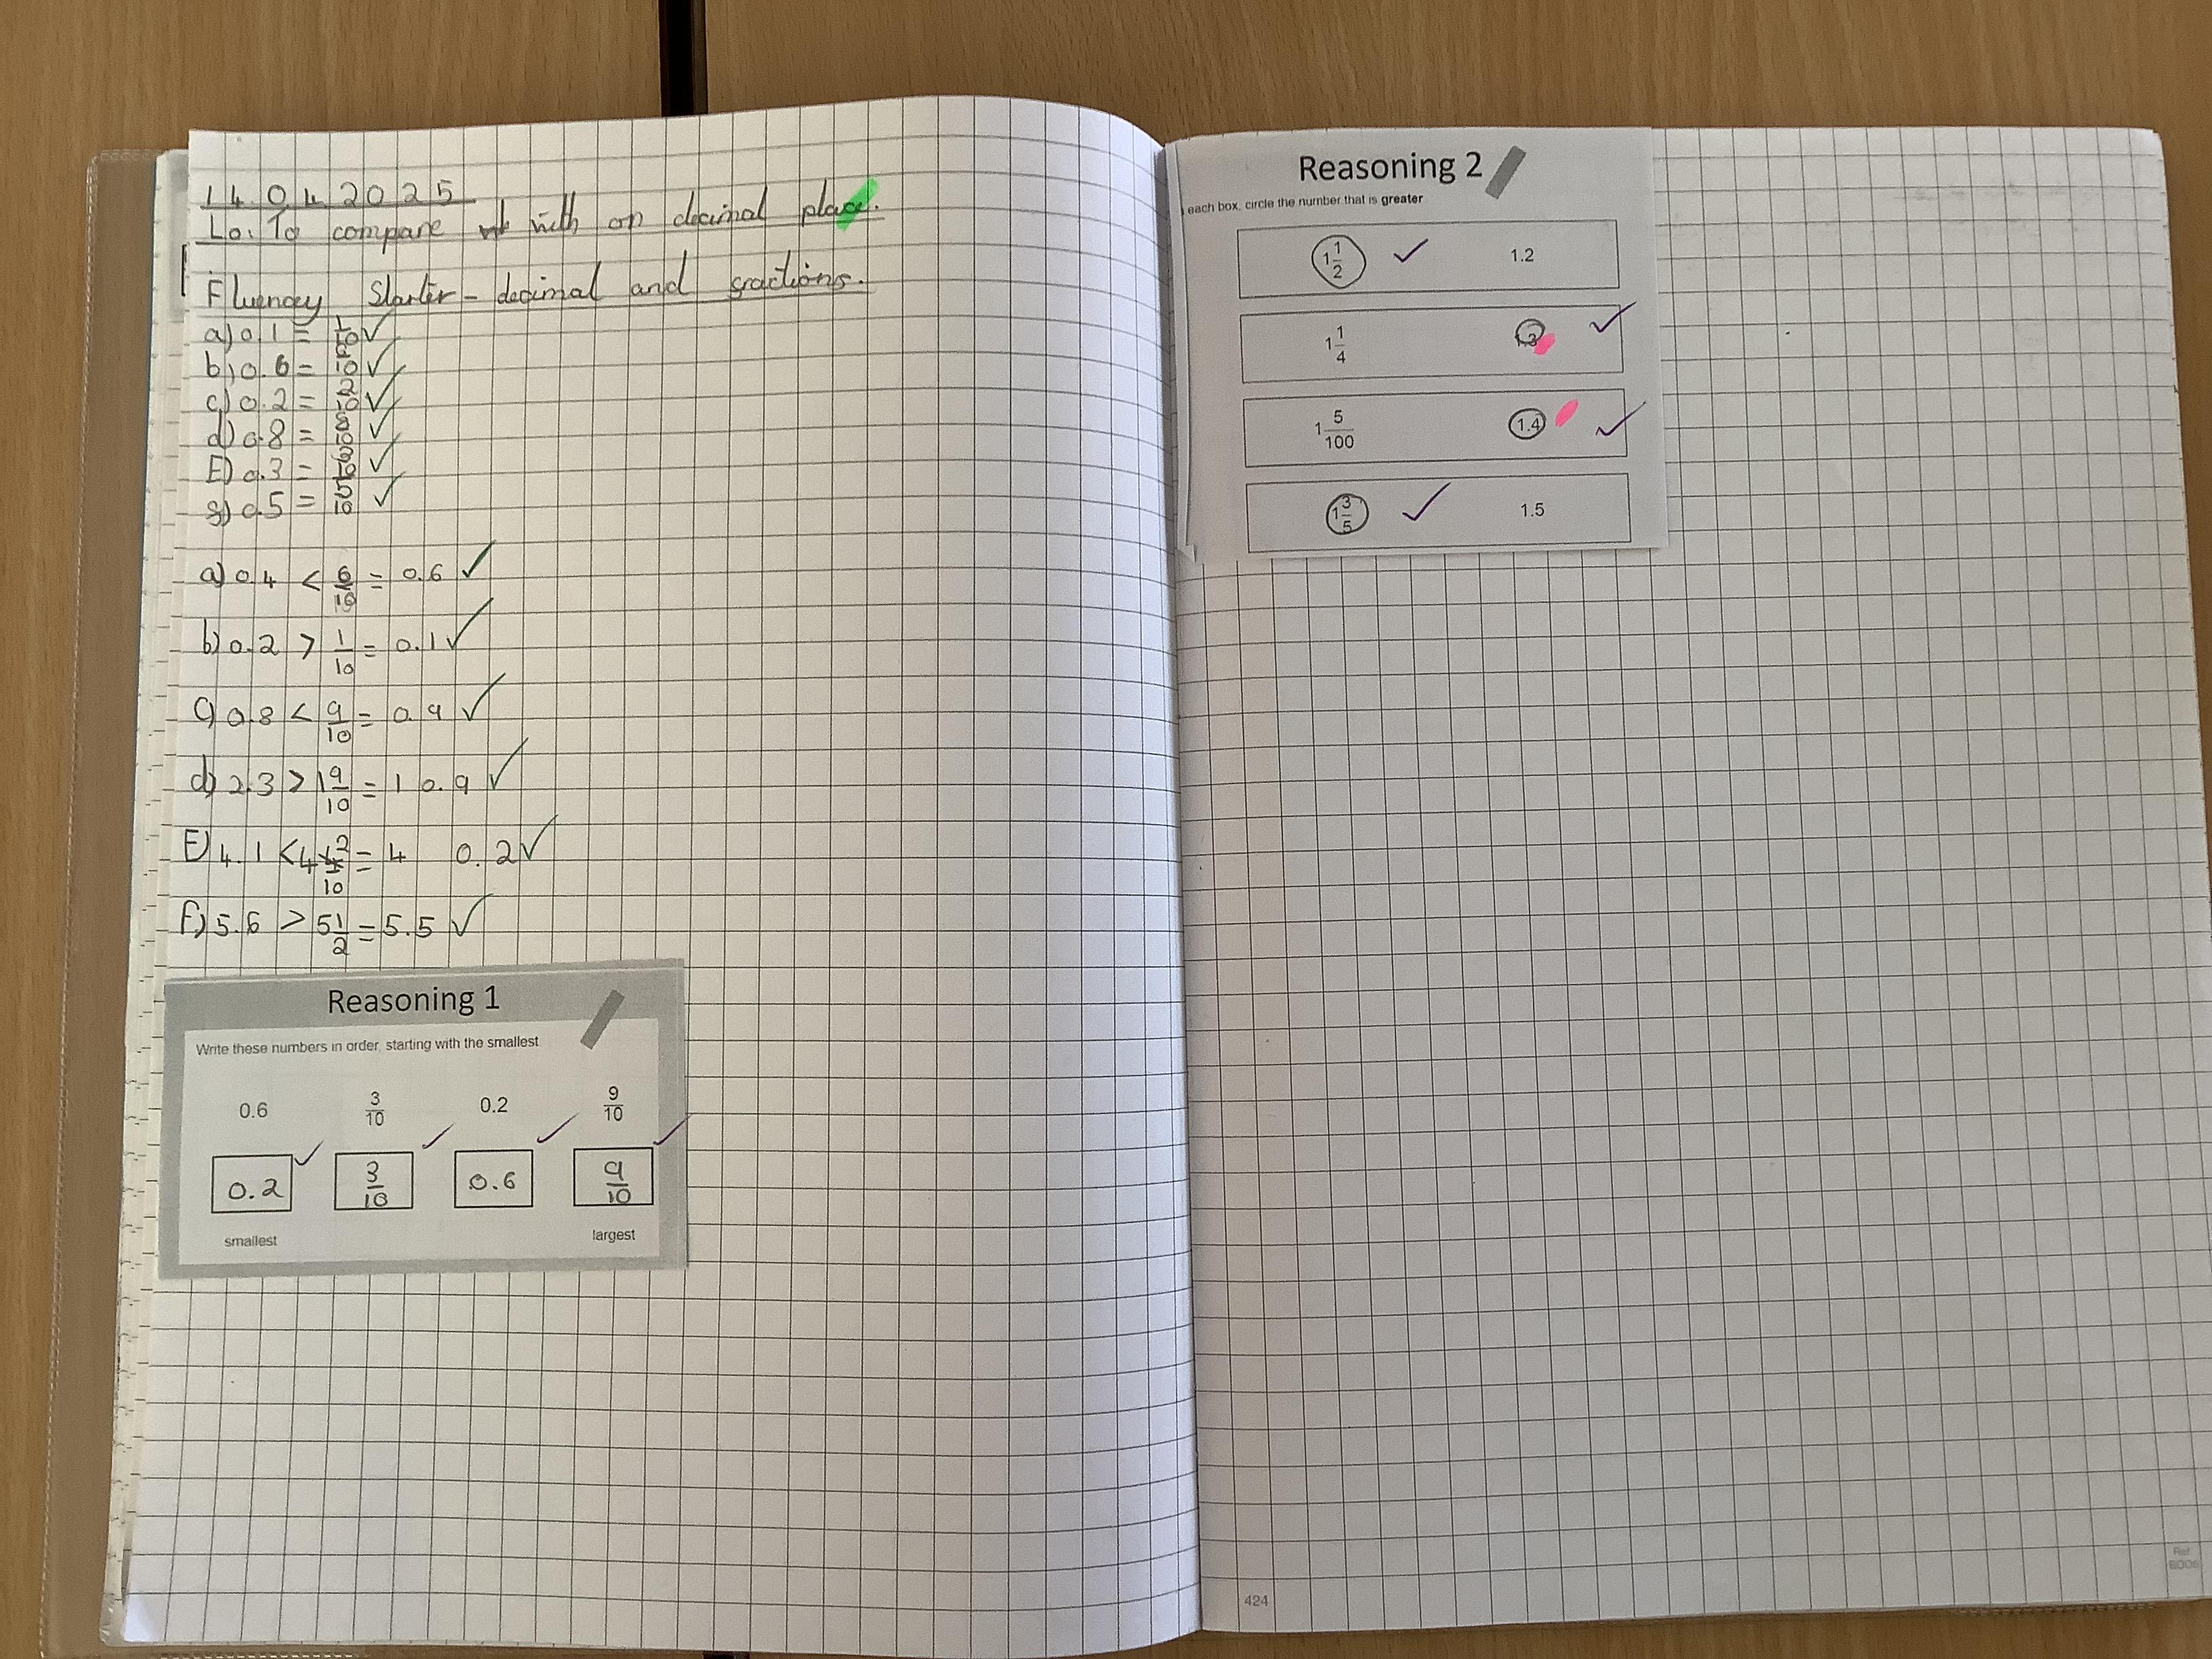 14.04.2025
Lo. To compare with on decimal place.
Fluency Starter - decimal and sractions.
a) 0.1 = 1/10 ✓
b) 0.6 = 6/10 ✓
c) 0.2 = 2/10 ✓
d) 0.8 = 8/10 ✓
E) 0.3 = 3/10 ✓
g) 0.5 = 5/10 ✓
a) 0.4 < 6/10 = 0.6 ✓
b) 0.2 > 1/10 = 0.1 ✓
c) 0.8 < 9/10 = 0.9 ✓
d) 2.3 > 1 9/10 = 1 0.9 ✓
E) 4.1 < 4 2/10 = 4 0.2 ✓
F) 5.6 > 5 1/2 = 5.5 ✓
Reasoning 1
Write these numbers in order, starting with the smallest
0.6 3/10 0.2 9/10
0.2 3/10 0.6 9/10
smallest largest
Reasoning 2
each box, circle the number that is greater
1 1/2 ✓ 1.2
1 1/4 1.3 ✓
1 5/100 1.4 ✓
1 3/5 ✓ 1.5
424
Ref